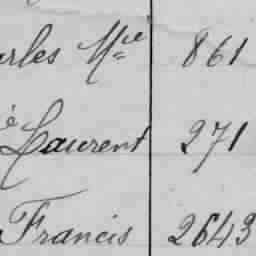 arles Mce 861
é Laurent 271
Francis 2643